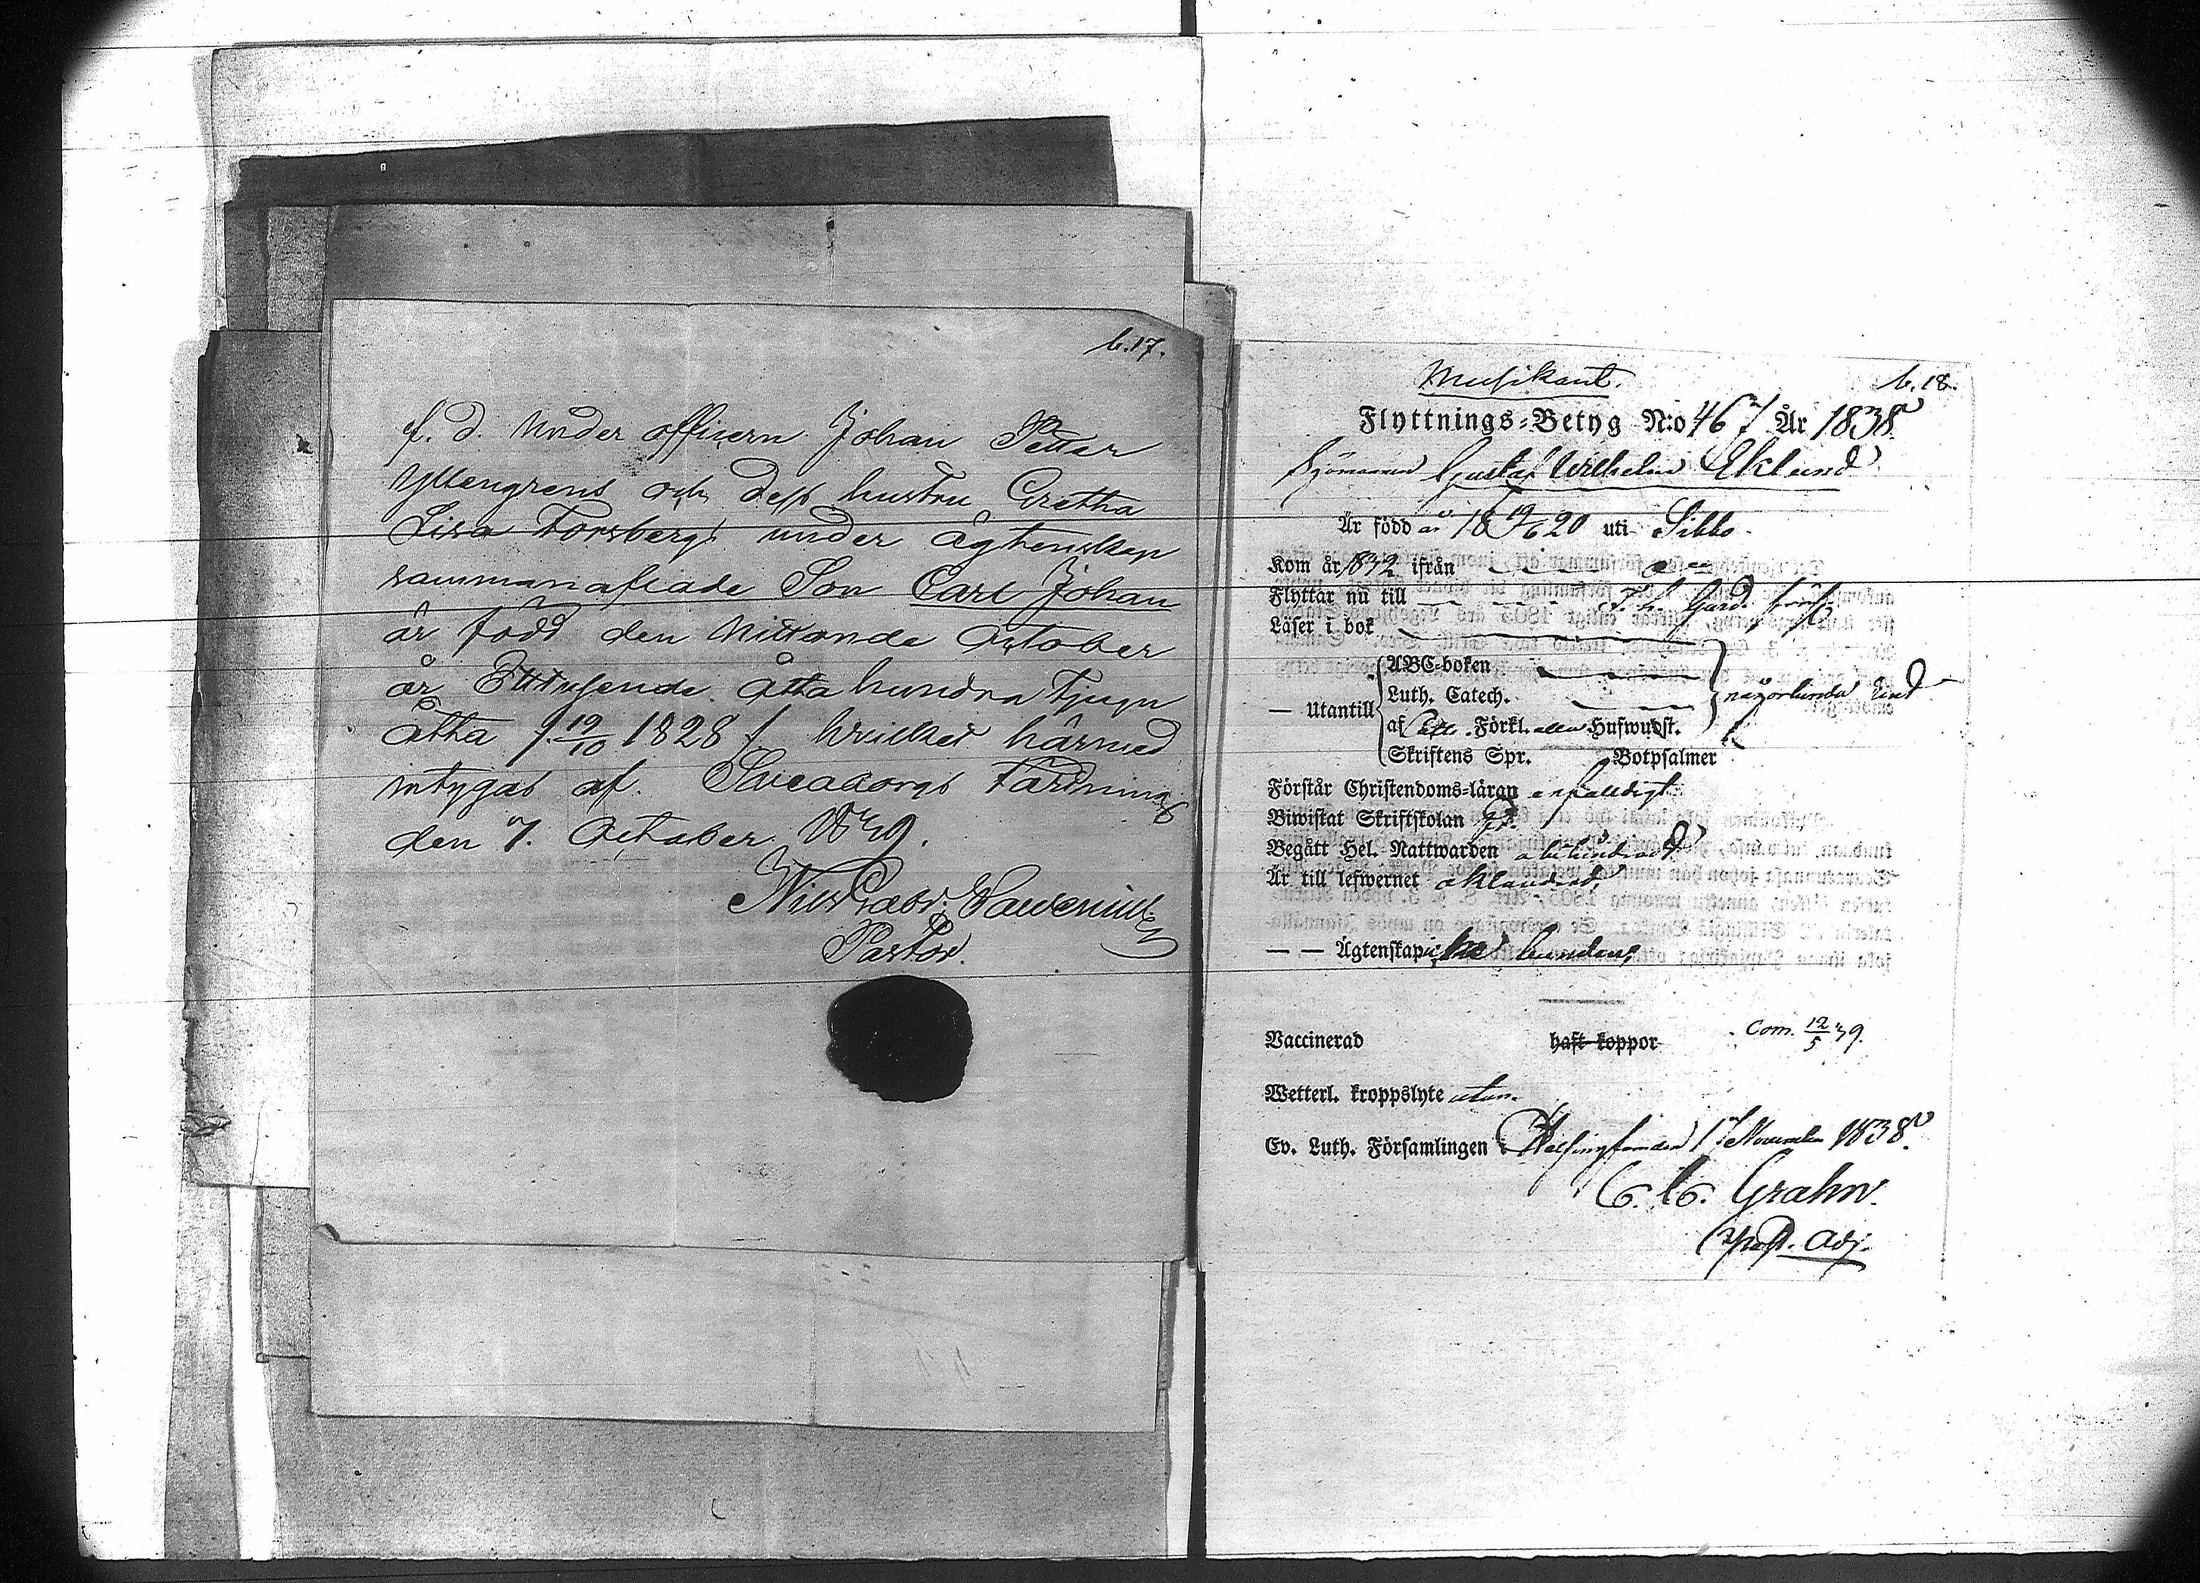 b.17.
f. d. Under officern Johan Petter
Yttengrens och dess hustru Gretha
Lisa Forsbergs under ägtenskap
sammanaflade Son Carl Johan
är född den Nittonde October
år Ettusende åtta hundra tjugu
åtta /. 19/10 1828 / hvilket härmed
intygas af. Sveaborgs Fästning
den 7. October 1839.
Nils Gabr:
Pastor.
Musikant.
b. 18.
Flyttnings-Betyg N:o 467 År 1838.
Sjömannen Gustaf Wilhelm Eklund
Är född år 18 19/6 20 uti Sibbo.
Kom år 1832 ifrån
Flyttar nu till F. L. Gard.
Läser i bok
ABC-boken
Luth. Catech.
— Utantill någorlunda
af Förkl. Hufwudst.
Skriftens Spr. Botpsalmer
Förstår Christendoms-läran enfaldigt
Biwistat Skriftskolan
Begått Hel. Nattwarden obehindrad
Är till lefwernet oklandrad,
— — Ägtenskap
Vaccinerad haft koppor
Com. 12/5 39.
Wetterl. kroppslyte utan.
Ev. Luth. Församlingen i Helsingfors den 17 November 1838.
C. C. Grahn.
Past. adj.